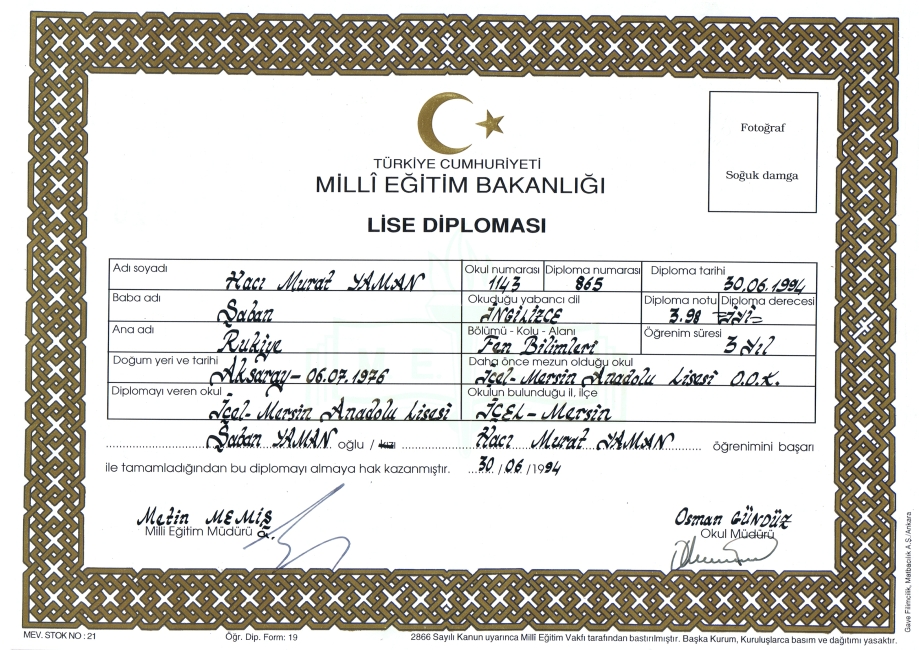 TÜRKİYE CUMHURİYETİ
MİLLÎ EĞİTİM BAKANLIĞI
LİSE DİPLOMASI
Fotoğraf
Soğuk damga
Adı soyadı Hacı Murat YAMAN
Okul numarası 1143
Diploma numarası 865
Diploma tarihi 30.06.1994
Baba adı Şaban
Okuduğu yabancı dil İNGİLİZCE
Diploma notu 3.98
Diploma derecesi =İyi=
Ana adı Rukiye
Bölümü - Kolu - Alanı Fen Bilimleri
Öğrenim süresi 3 Yıl
Doğum yeri ve tarihi Aksaray - 06.07.1976
Daha önce mezun olduğu okul İçel-Mersin Anadolu Lisesi O.O.K.
Diplomayı veren okul İçel-Mersin Anadolu Lisesi
Okulun bulunduğu il, ilçe İÇEL-Mersin
Şaban YAMAN oğlu / kızı Hacı Murat YAMAN öğrenimini başarı
ile tamamladığından bu diplomayı almaya hak kazanmıştır. 30 / 06 / 1994
Metin MEMİŞ
Milli Eğitim Müdürü a.
Osman GÜNDÜZ
Okul Müdürü
MEV. STOK NO : 21
Öğr. Dip. Form: 19
2866 Sayılı Kanun uyarınca Millî Eğitim Vakfı tarafından bastırılmıştır. Başka Kurum, Kuruluşlarca basım ve dağıtımı yasaktır.
Gaye Filmcilik, Matbacılık A.Ş./Ankara